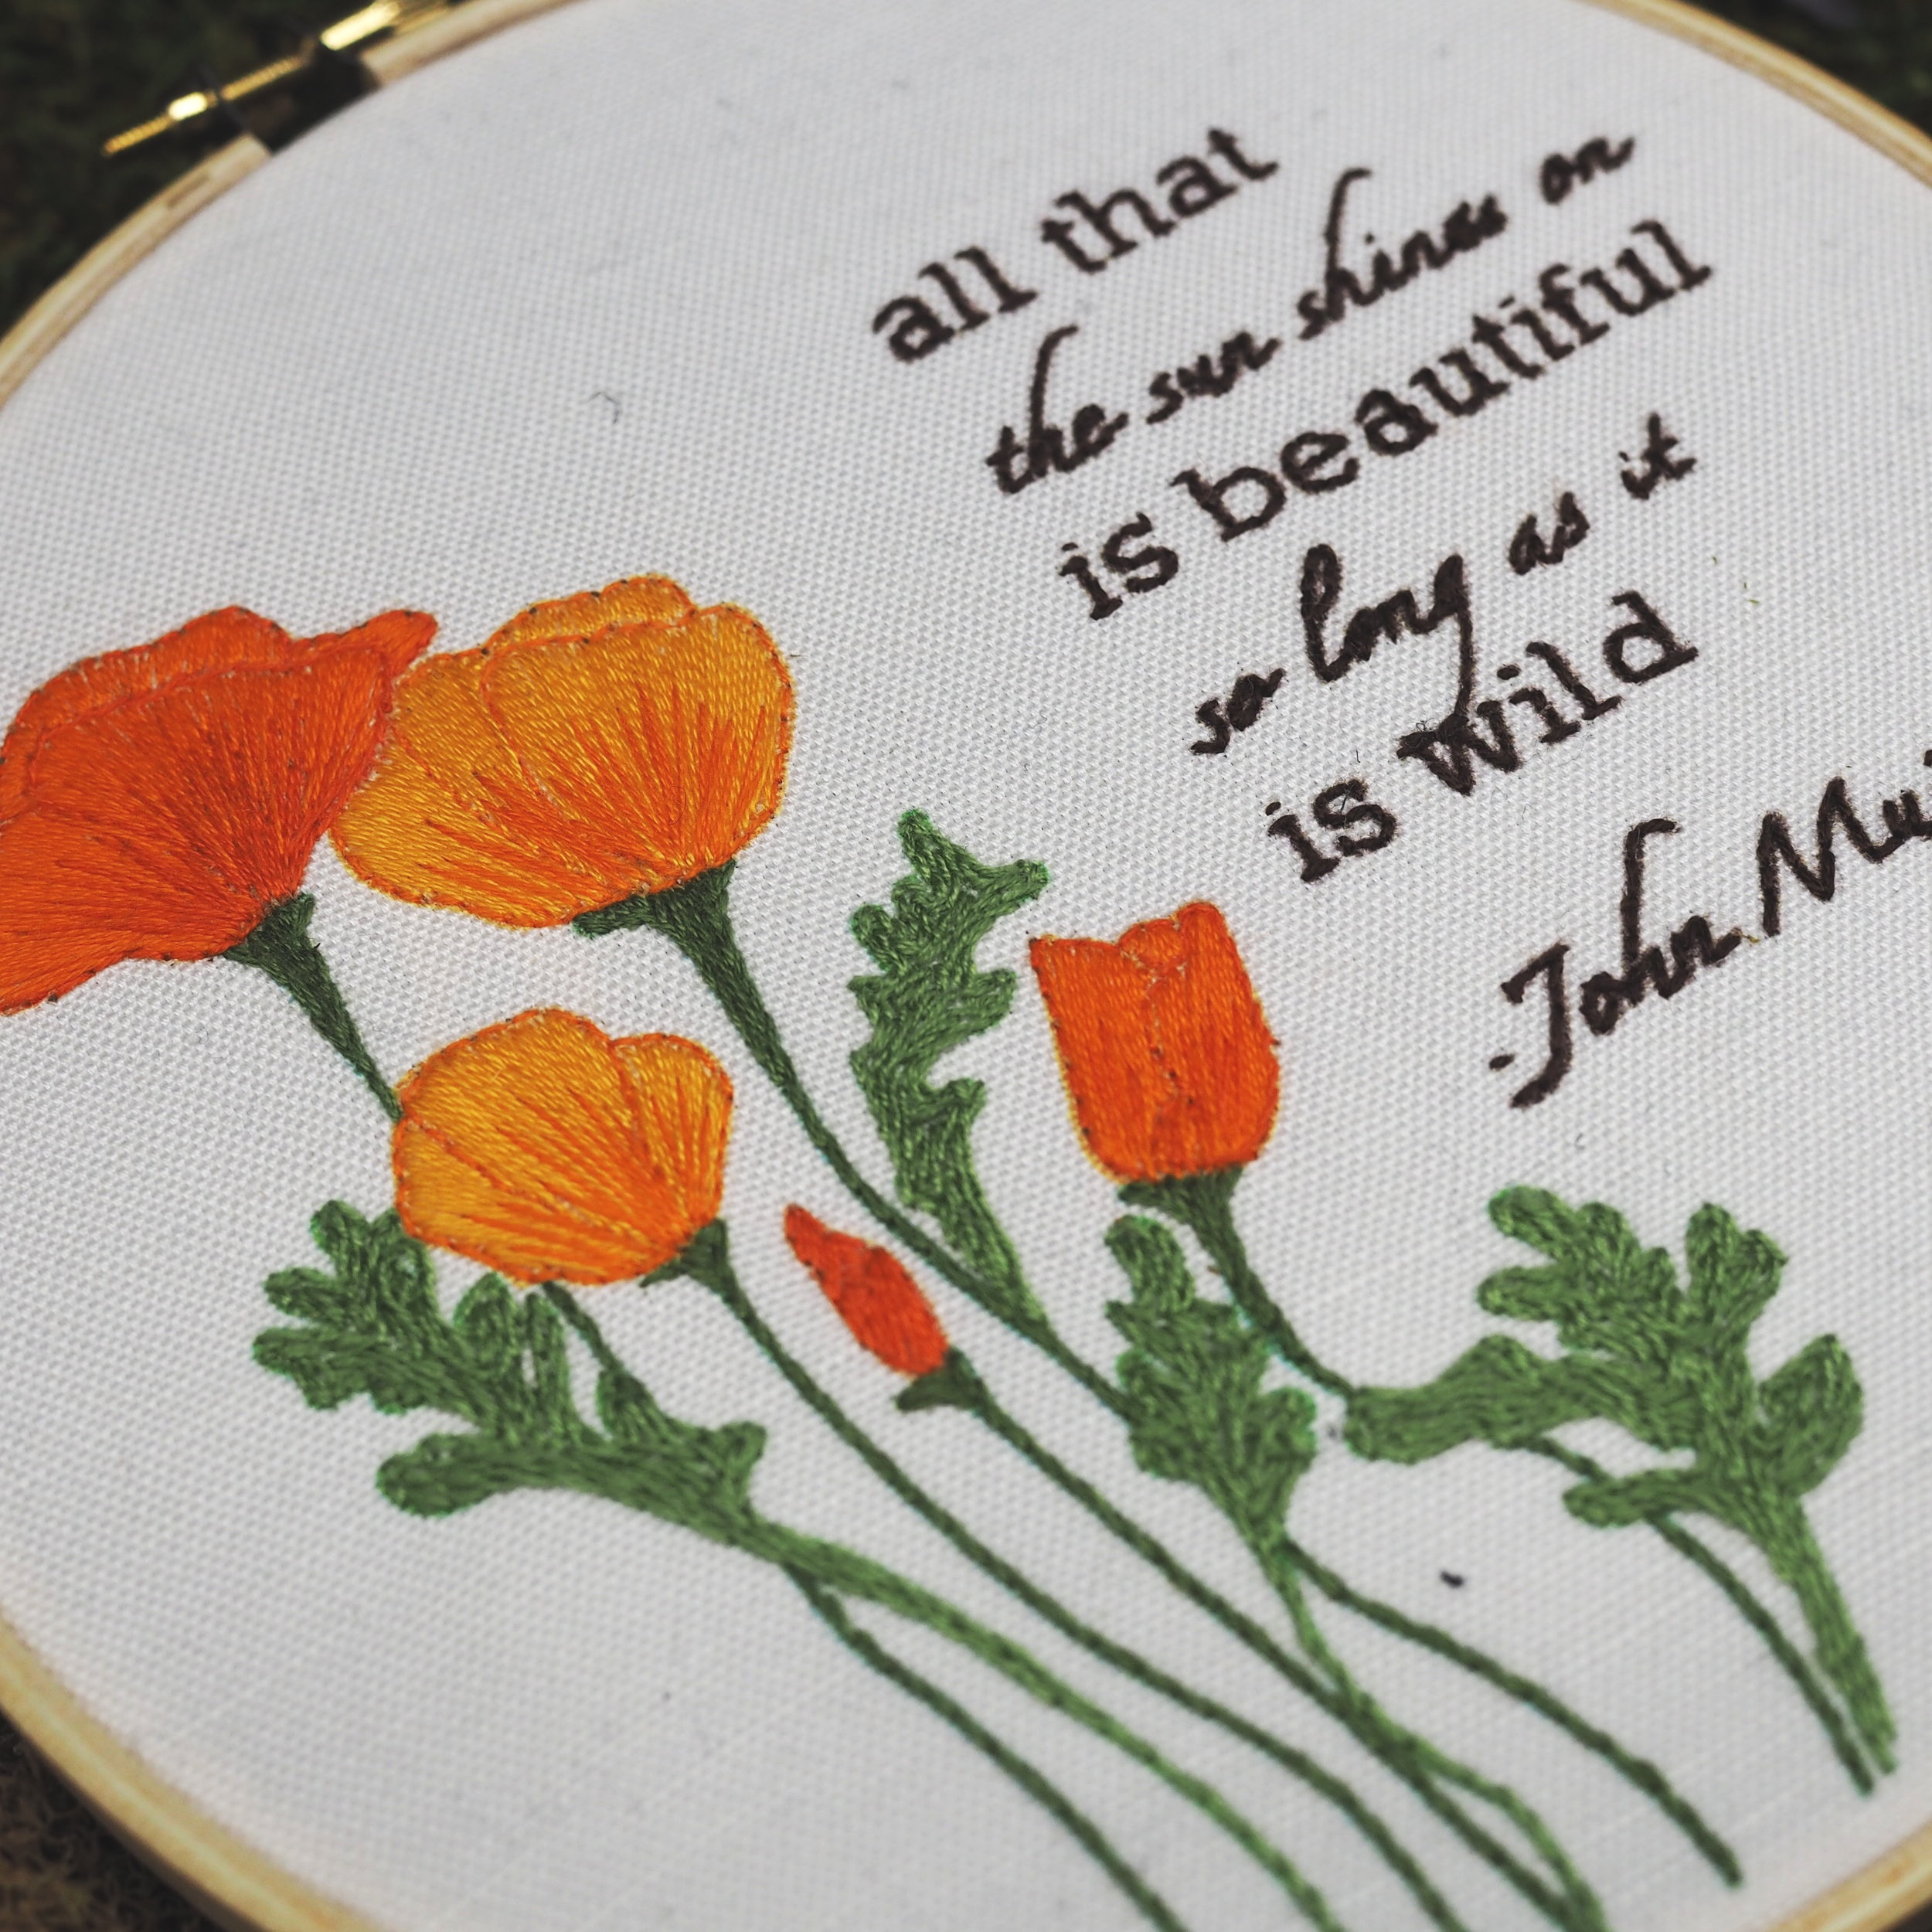 all that
the sun shines on
is beautiful
so long as it
is wild
-John Mui